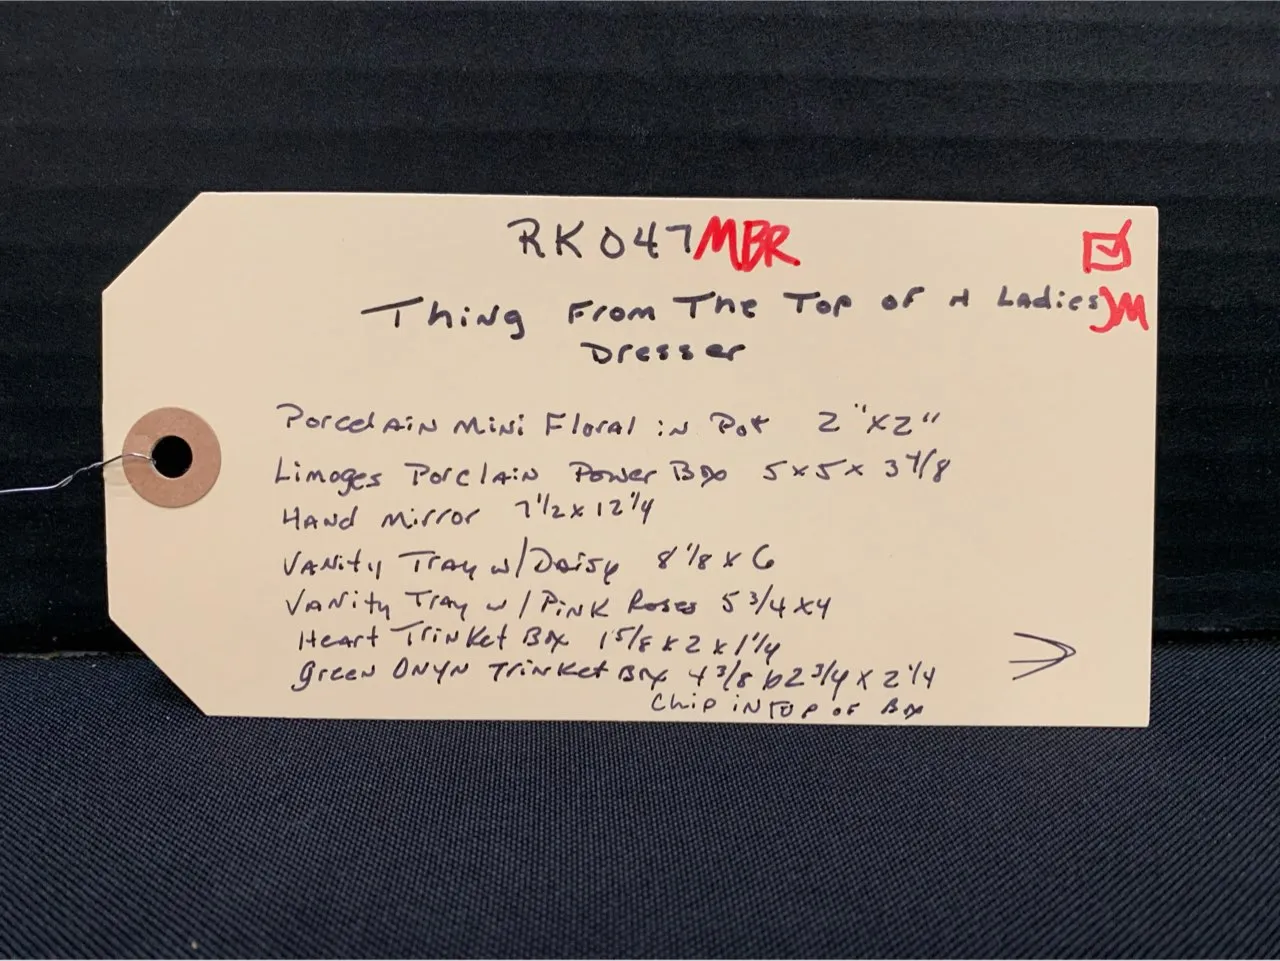 RK047 MBR
Thing From The Top of A Ladies JM
Dresser
Porcelain Mini Floral in Pot 2"x2"
Limoges Porclain Power Box 5x5x 3 7/8
Hand Mirror 7 1/2 x 12 1/4
Vanity Tray w/Daisy 8 1/8 x 6
Vanity Tray w/Pink Roses 5 3/4 x4
Heart Trinket Box 1 5/8 x 2 x 1 1/4
Green Onyn Trinket Box 4 3/8 2 3/4 x 2 1/4
Chip in Top of Box